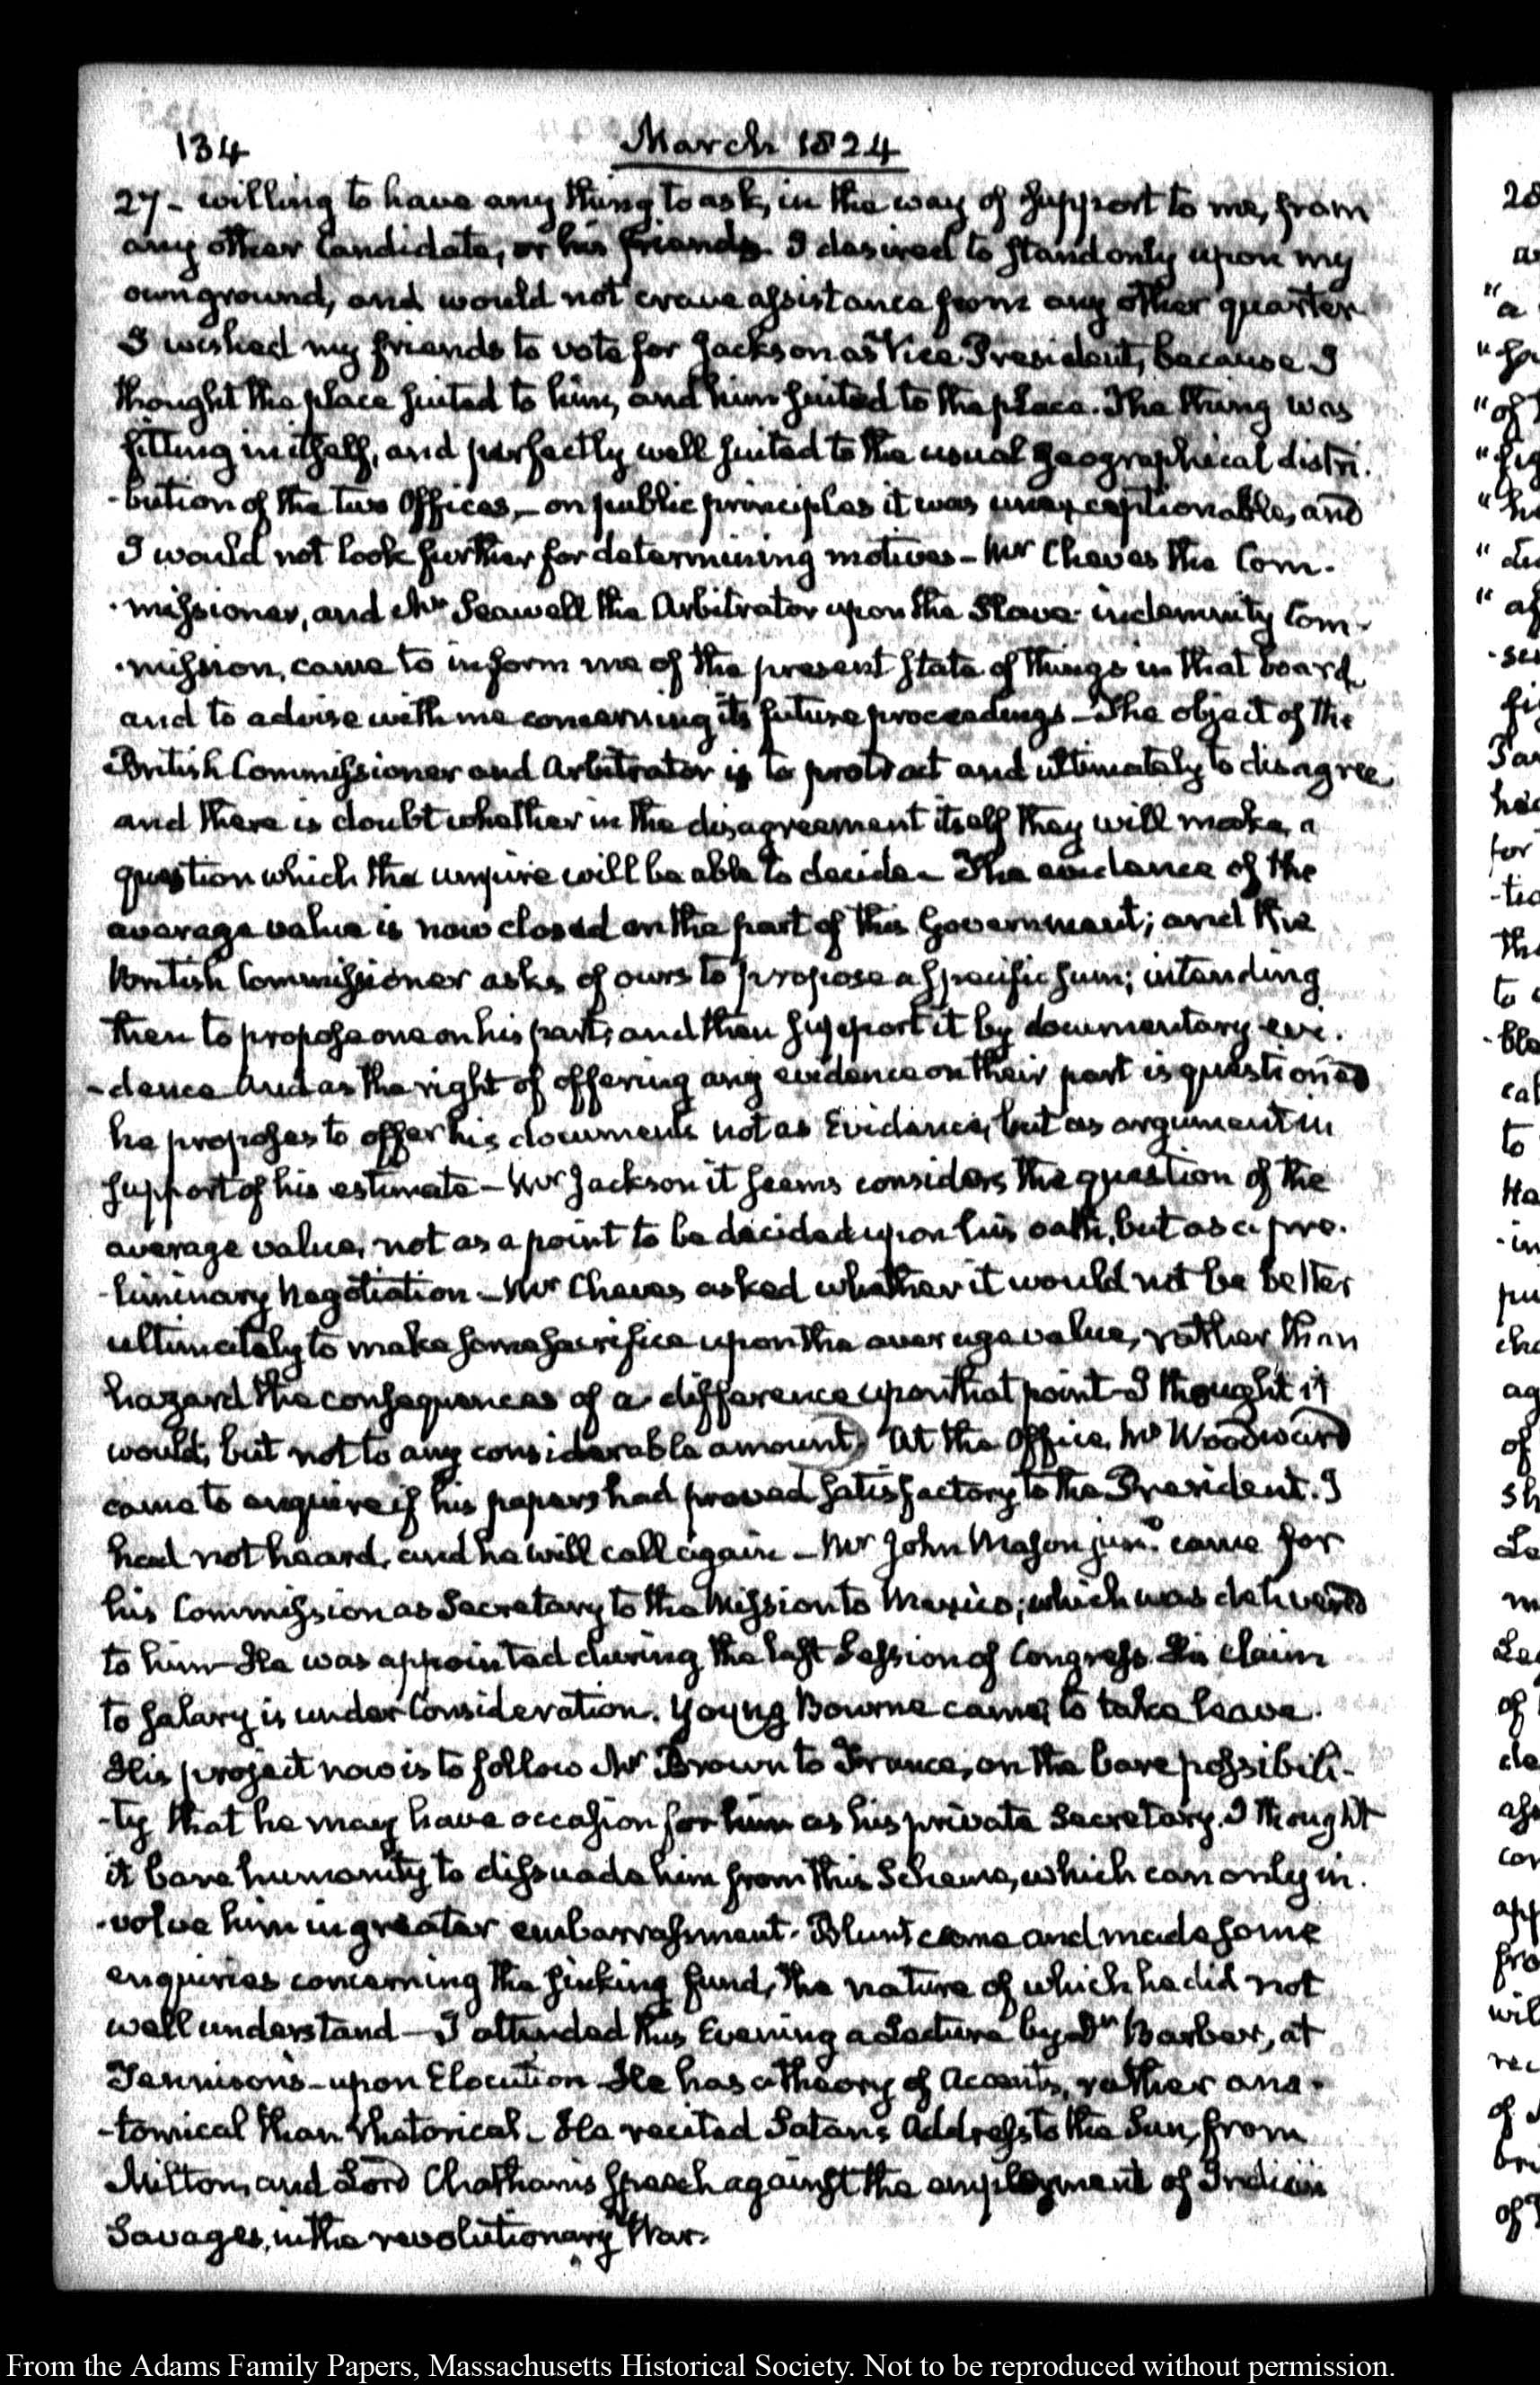 134
March 1824
27 - willing to have any thing to ask, in the way of support to me, from
any other Candidate, or his friends. I desired to stand only upon my
own ground, and would not crave assistance from any other quarter
I wished my friends to vote for Jackson as Vice President, because I
thought the place suited to him, and him suited to the place. The thing was
fitting in itself, and perfectly well suited to the usual geographical distri-
-bution of the two Offices, - on public principles it was unexceptionable, and
I would not look further for determining motives - Mr Cheves the Com-
-missioner, and Mr Seawell the Arbitrator upon the Slave-indemnity Com-
-mission, came to inform me of the present state of things in that board,
and to advise with me concerning its future proceedings - The object of the
British Commissioner and Arbitrator is to protract and ultimately to disagree
and there is doubt whether in the disagreement itself they will make a
question which the umpire will be able to decide - The evidence of the
average value is now closed on the part of this Government; and the
British Commissioner asks of ours to propose a specific sum; intending
then to propose one on his part; and then support it by documentary evi-
-dence And as the right of offering any evidence on their part is questioned
he proposes to offer his documents not as Evidence, but as argument in
support of his estimate - Mr Jackson it seems considers the question of the
average value, not as a point to be decided upon his oath, but as a pre-
-liminary Negotiation - Mr Cheves asked whether it would not be better
ultimately to make some sacrifice upon the average value, rather than
hazard the consequences of a difference upon that point - I thought it
would, but not to any considerable amount) At the Office, Mr Woodward
came to enquire if his papers had proved satisfactory to the President. I
had not heard, and he will call again - Mr John Mason junr. came for
his Commission as Secretary to the Mission to Mexico; which was delivered
to him - He was appointed during the last Session of Congress. His claim
to salary is under Consideration. Young Bourne came to take leave.
His project now is to follow Mr Brown to France, on the bare possibili-
-ty that he may have occasion for him as his private Secretary. I thought
it bare humanity to dissuade him from this Scheme, which can only in-
-volve him in greater embarrassment. Blunt came and made some
enquiries concerning the sinking fund, the nature of which he did not
well understand - I attended this Evening a Lecture by Dr Barber, at
Tennison's - upon Elocution - He has a theory of Accents, rather ana-
-tomical than rhetorical - He recited Satan's Address to the Sun, from
Milton, and Lord Chatham's speech against the employment of Indian
Savages, in the revolutionary War.
From the Adams Family Papers, Massachusetts Historical Society. Not to be reproduced without permission.